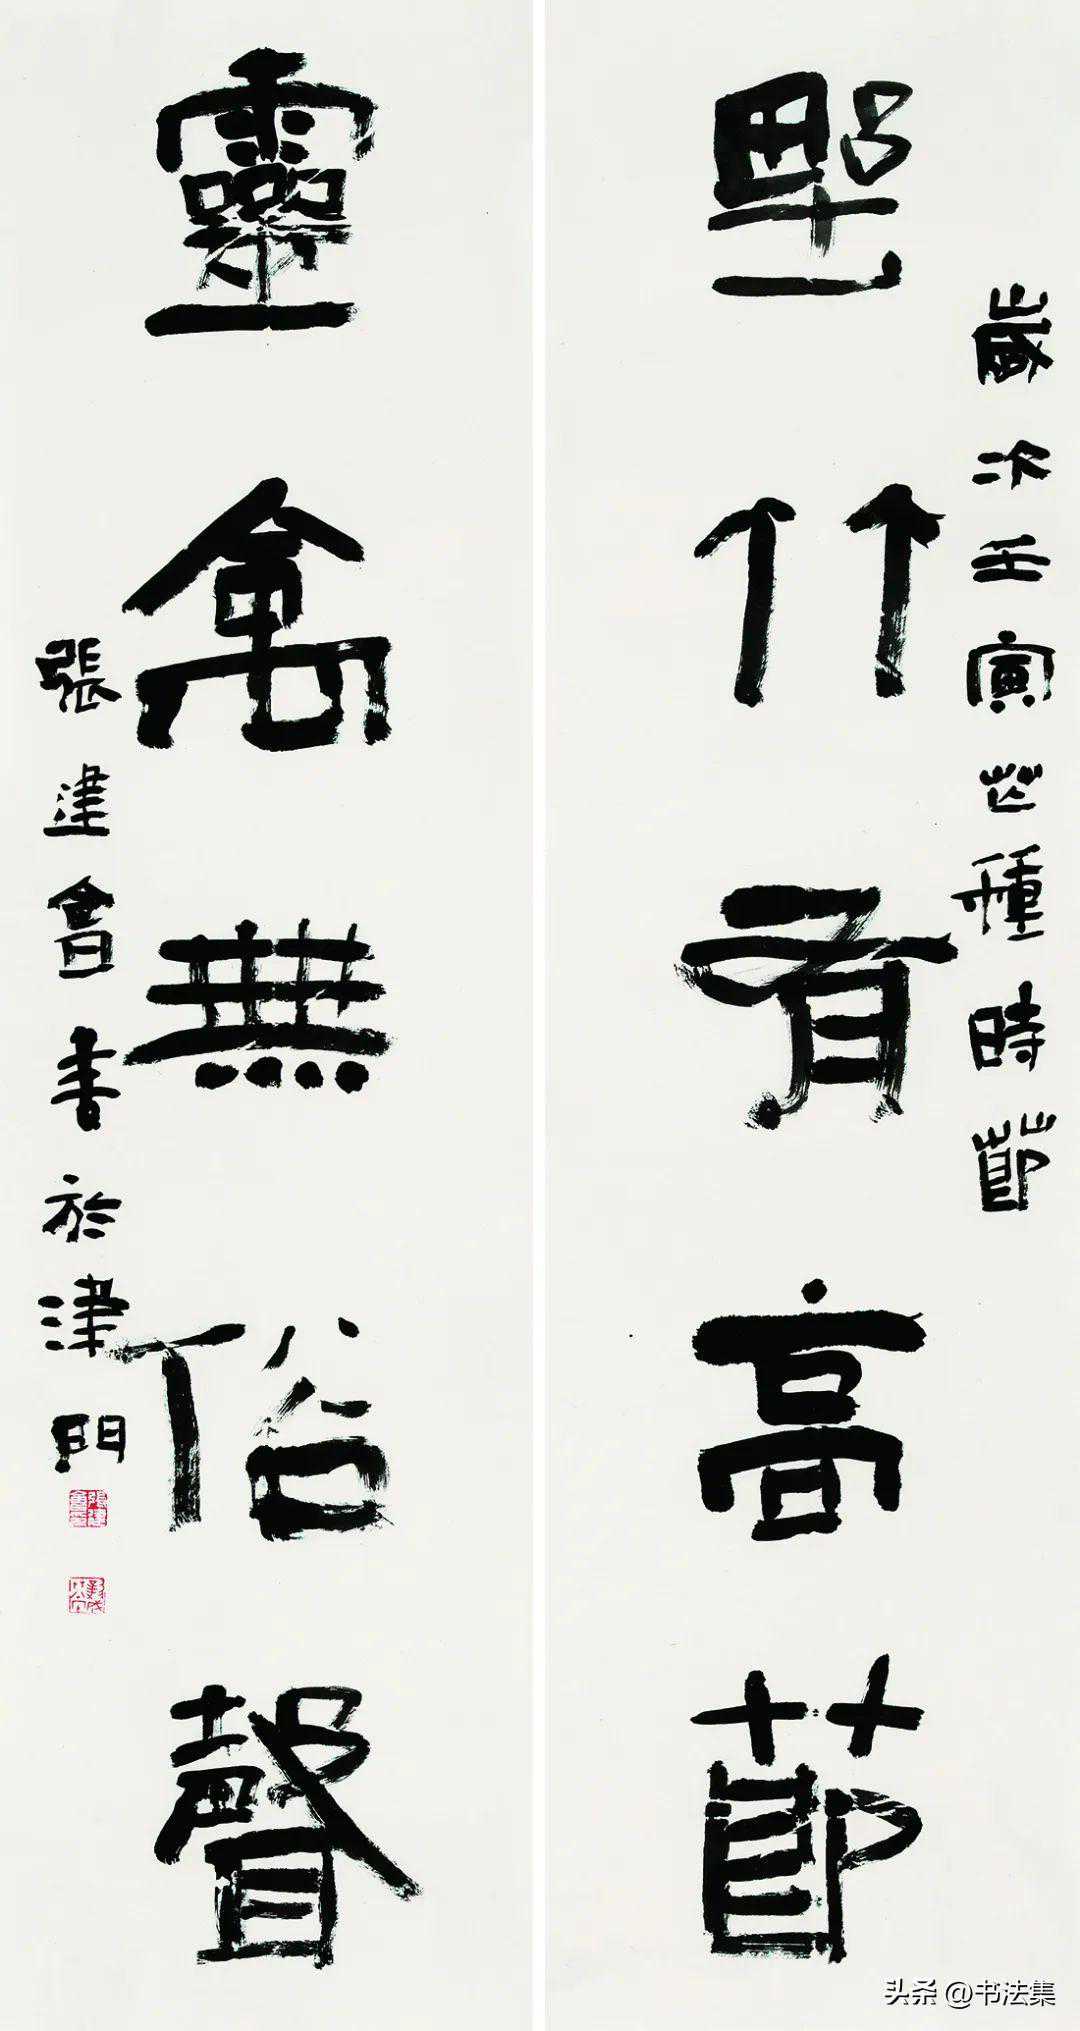 歲次壬寅芒種時節
野竹有高節
靈禽無俗聲
張建會書於津門
張建會印
头条 @书法集